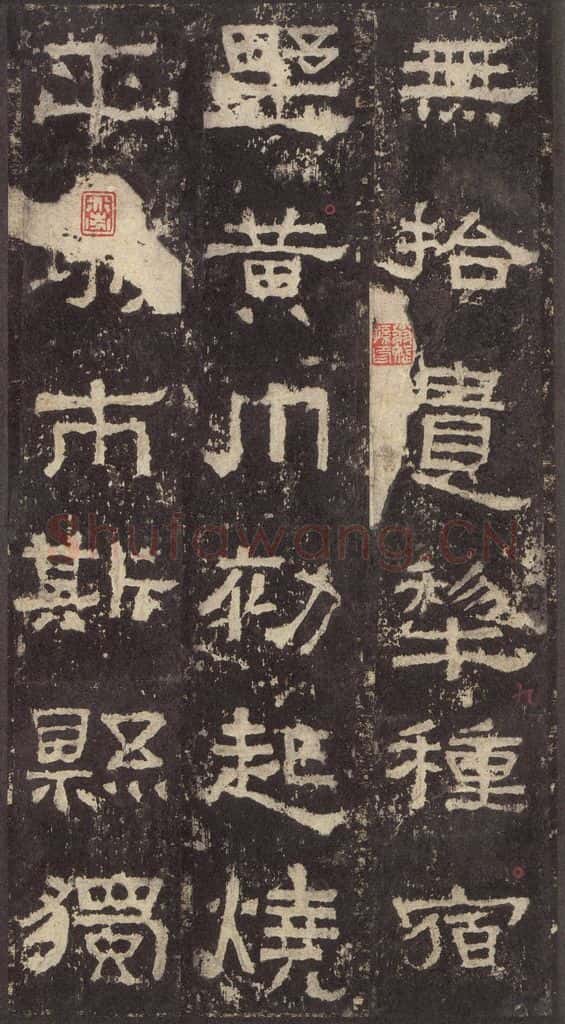 無拾遺犁種宿
野黃巾初起燒
平市斯縣獨
Shufawang.CN